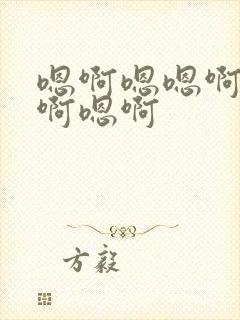 嗯啊嗯嗯啊
啊嗯啊
方毅